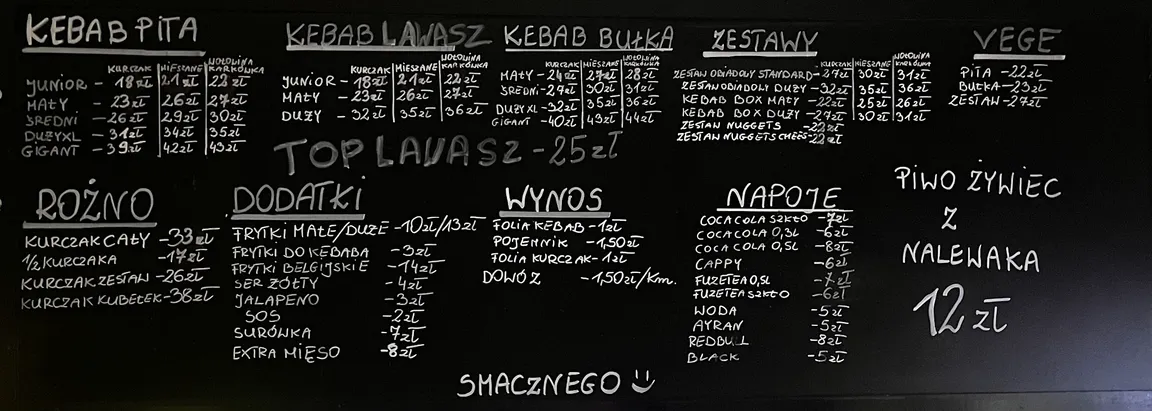 KEBAB PITA
KURCZAK MIESZANE WOŁOWINA KARKÓWKA
JUNIOR - 18zł 21zł 22zł
MAŁY - 23zł 26zł 27zł
ŚREDNI - 26zł 29zł 30zł
DUŻY XL - 31zł 34zł 35zł
GIGANT - 39zł 42zł 43zł
KEBAB LAWASZ
KURCZAK MIESZANE WOŁOWINA KARKÓWKA
JUNIOR - 18zł 21zł 22zł
MAŁY - 23zł 26zł 27zł
DUŻY - 32zł 35zł 36zł
KEBAB BUŁKA
KURCZAK MIESZANE WOŁOWINA KARKÓWKA
MAŁY - 24zł 27zł 28zł
ŚREDNI - 27zł 30zł 31zł
DUŻY XL - 32zł 35zł 36zł
GIGANT - 40zł 43zł 44zł
TOP LAWASZ - 25zł
ZESTAWY
KURCZAK MIESZANE WOŁOWINA KARKÓWKA
ZESTAW OBIADOWY STANDARD - 27zł 30zł 31zł
ZESTAW OBIADOWY DUŻY - 32zł 35zł 36zł
KEBAB BOX MAŁY - 22zł 25zł 26zł
KEBAB BOX DUŻY - 27zł 30zł 31zł
ZESTAW NUGGETS - 22zł
ZESTAW NUGGETS CHEES - 22zł
VEGE
PITA - 22zł
BUŁKA - 23zł
ZESTAW - 27zł
ROŻNO
KURCZAK CAŁY - 33zł
1/2 KURCZAKA - 17zł
KURCZAK ZESTAW - 26zł
KURCZAK KUBEŁEK - 38zł
DODATKI
FRYTKI MAŁE/DUŻE - 10zł/13zł
FRYTKI DO KEBABA - 3zł
FRYTKI BELGIJSKIE - 14zł
SER ŻÓŁTY - 4zł
JALAPENO - 3zł
SOS - 2zł
SURÓWKA - 7zł
EXTRA MIĘSO - 8zł
WYNOS
FOLIA KEBAB - 1zł
POJEMNIK - 1,50zł
FOLIA KURCZAK - 1zł
DOWÓZ - 1,50zł/Km.
NAPOJE
COCA COLA SZKŁO - 7zł
COCA COLA 0,3L - 6zł
COCA COLA 0,5L - 8zł
CAPPY - 6zł
FUZETEA 0,5L - 7zł
FUZETEA SZKŁO - 6zł
WODA - 5zł
AYRAN - 5zł
REDBULL - 8zł
BLACK - 5zł
PIWO ŻYWIEC
Z
NALEWAKA
12 zł
SMACZNEGO